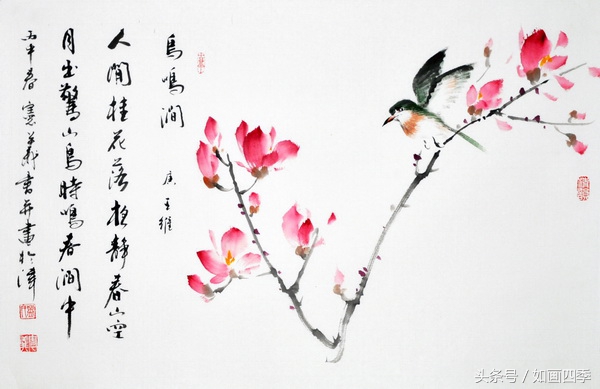 鳥鳴澗
唐 王維
人閒桂花落夜靜春山空
月出驚山鳥時鳴春澗中
丙申春書并畫於津
头条号 / 如画四季